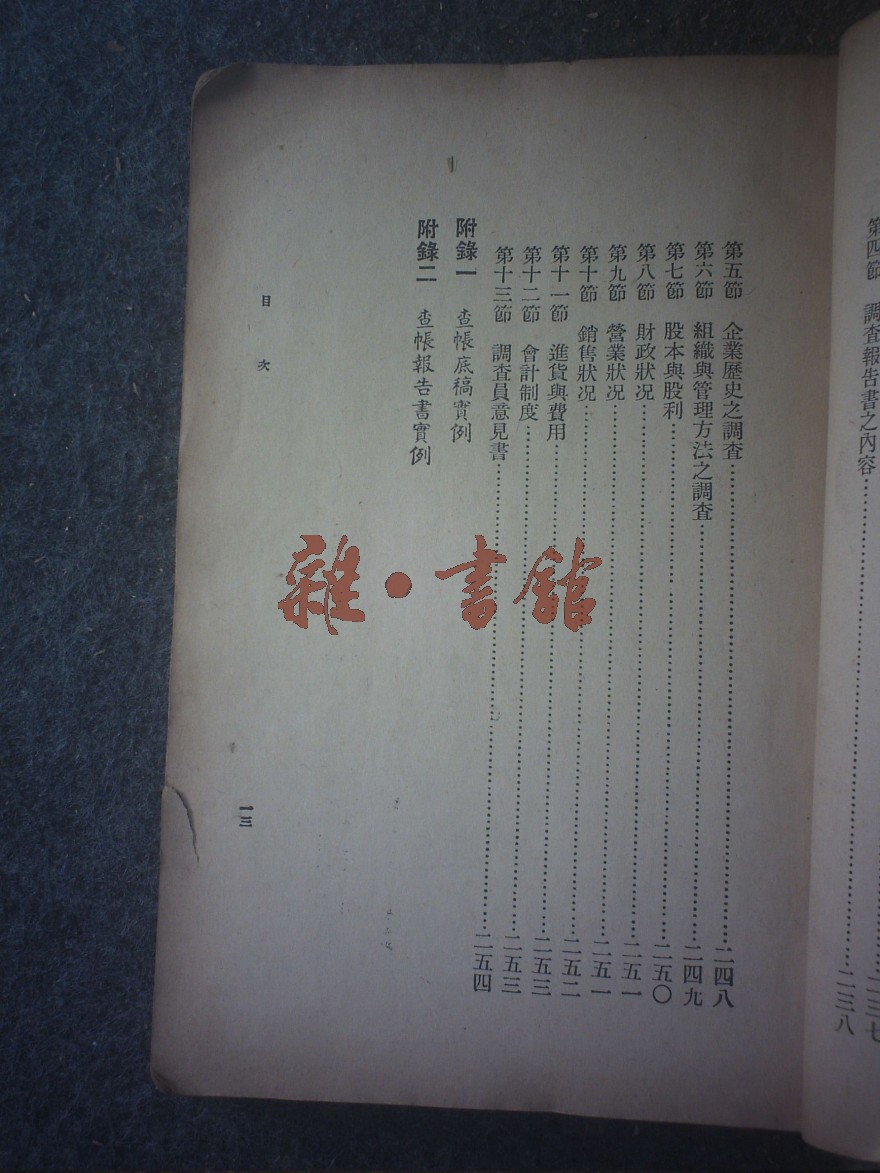 第四節 調查報告書之內容
二三七
二三八
第五節 企業歷史之調查……二四八
第六節 組織與管理方法之調查……二四九
第七節 股本與股利……二五〇
第八節 財政狀況……二五一
第九節 營業狀況……二五一
第十節 銷售狀况……二五二
第十一節 進貨與費用……二五三
第十二節 會計制度……二五三
第十三節 調查員意見書……二五四
附錄一 查帳底稿實例
附錄二 查帳報告書實例
目次
一三
雜·書館